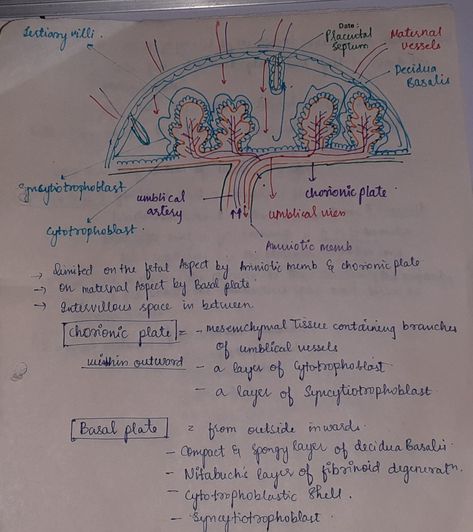 Tertiary villi
Date :
Placental
Septum
Maternal
vessels
Decidua
Basalis
Syncytiotrophoblast
Cytotrophoblast
umblical
artery
umblical vien
chorionic plate
Amniotic memb
→ Limited on the fetal Aspect by Amniotic memb & chorionic plate
→ on maternal Aspect by Basal plate
→ Intervillous space in between
Chorionic plate = - mesenchymal Tissue containing branches
of umblical vessels
within outward - a layer of Cytotrophoblast
- a layer of Syncytiotrophoblast
Basal plate = from outside inwards
- Compact & Spongy layer of decidua Basalis
- Nitabuch's layer of fibrinoid degeneratn.
- Cytotrophoblastic Shell.
- Syncytiotrophoblast